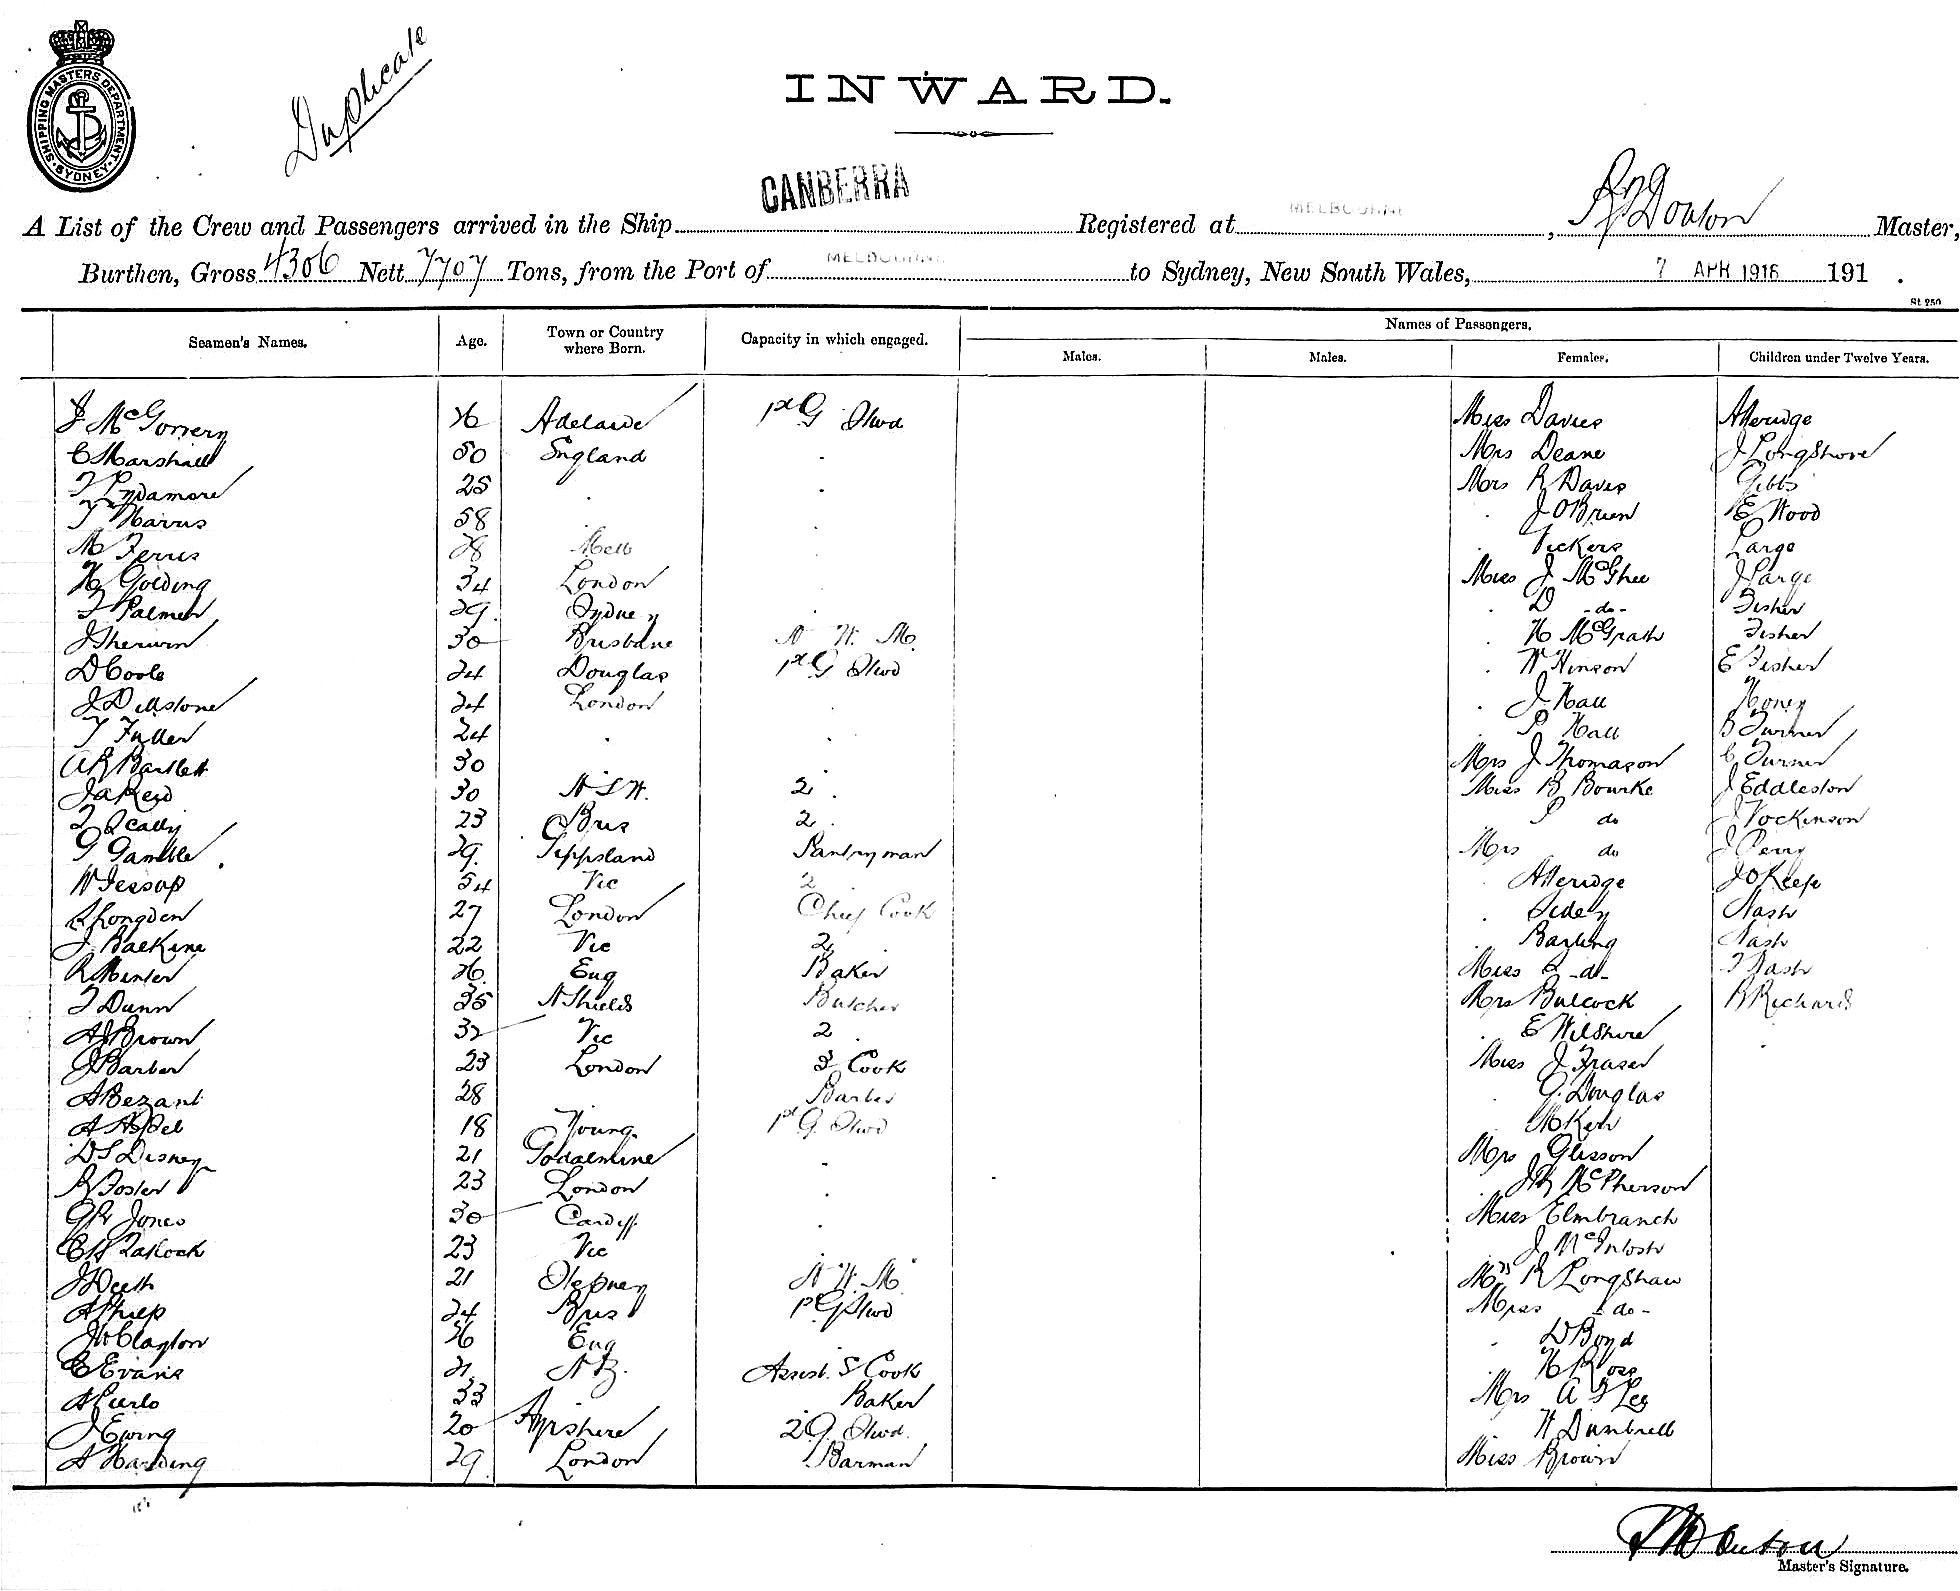 SHIPPING MASTERS DEPARTMENT · SYDNEY ·
Duplicate
INWARD.
A List of the Crew and Passengers arrived in the Ship CANBERRA Registered at MELBOURNE, Douton Master,
Burthen, Gross 4306 Nett 7707 Tons, from the Port of MELBOURNE to Sydney, New South Wales, 7 APR 1916 191 .
St 250
Seamen's Names. Age. Town or Country where Born. Capacity in which engaged. Names of Passengers.
Males. Males. Females. Children under Twelve Years.
J McGovern 26 Adelaide 1st G Stwd Miss Davies Atteridge
C Marshall 50 England . Mrs Deane J Longshore
T Lydamore 25 . . Mrs R Davis Gibbs
T Harris 58 . . . J OBrien E Wood
M Ferris 28 Melb . . Vickers Large
H Golding 34 London . Miss J McGhee J Large
F Palmer 29 Sydney . . D -do- Fisher
J Sherwin 30 Brisbane N W M. . K McGrath Fisher
D Coole 24 Douglas 1st G Stwd . W Hinson E Fisher
J Dillstone 24 London . . J Hall Honey
T Fuller 24 . . . P Hall B Turner
A R Bartlett 30 Mrs J Thomason C Turner
J A Reid 30 N S W. 2 . Miss B Bourke J Eddleston
T Scally 23 Bris 2 . P do J Hockinson
G Gamble 29. Gippsland Pantryman Mrs do J Perry
W Jessop 54 Vic 2 . Atteridge J OKeefe
R Longden 27 London Chief Cook . Sidey Nash
J. Baekine 22 Vic 2 . . Barling Nash
R Minter 26. Eng Baker Miss -d- T Nash
T Dunn 35 N Shields Butcher Mrs Bulcock R Richards
A J Brown 32 Vic 2 . E Wilshire
J Barber 23 London 3 Cook Miss J Fraser
A Bezant 28 Barber . G. Douglas
A Aspel 18 Young 1st G. Stwd M Kerr
D S Disney 21 Godalmine . Mrs Glisson
R Foster 23 London . . McPherson
G R Jones 30 Cardiff . Miss Elmbranch
23 Vic J McIntosh
J Deeth 21 Stepney N W M Mrs R Longshaw
A Philp 24 Bris 1st G Stwd Miss - do -
J W Clayton 26 Eng . D Boyd
C Evans 21. N Z. Assist. S Cook . H Ross
A Curlo 33 Baker Mrs A F Leg
J Ewing 20 Ayrshire 2 G. Stwd. W Dumbrell
A Harding 29. London Barman Miss Brown
Douton
Master's Signature.